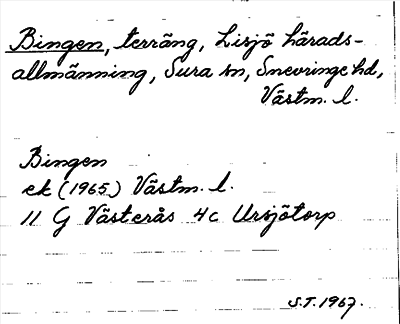 Bingen, terräng, Lisjö härads-
allmänning, Sura sn, Snevringe hd,
Västm. l.
Bingen
ek (1965) Västm. l.
11 G Västerås 4c Ursjötorp
S.T. 1967.